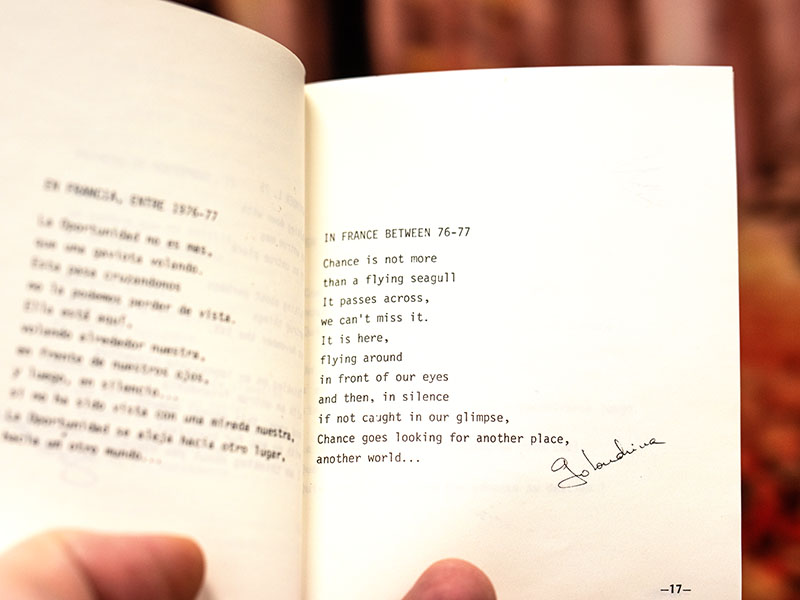 EN FRANCIA, ENTRE 1976-77
La Oportunidad no es mas,
que una gaviota volando.
Esta pasa cruzandonos
no la podemos perder de vista.
Ella está aquí,
volando alrededor nuestra,
en frente de nuestros ojos,
y luego, en silencio...
si no ha sido vista con una mirada nuestra,
La Oportunidad se aleja hacia otro lugar,
hacia un otro mundo...
IN FRANCE BETWEEN 76-77
Chance is not more
than a flying seagull
It passes across,
we can't miss it.
It is here,
flying around
in front of our eyes
and then, in silence
if not caught in our glimpse,
Chance goes looking for another place,
another world...
Golondrina
—17—